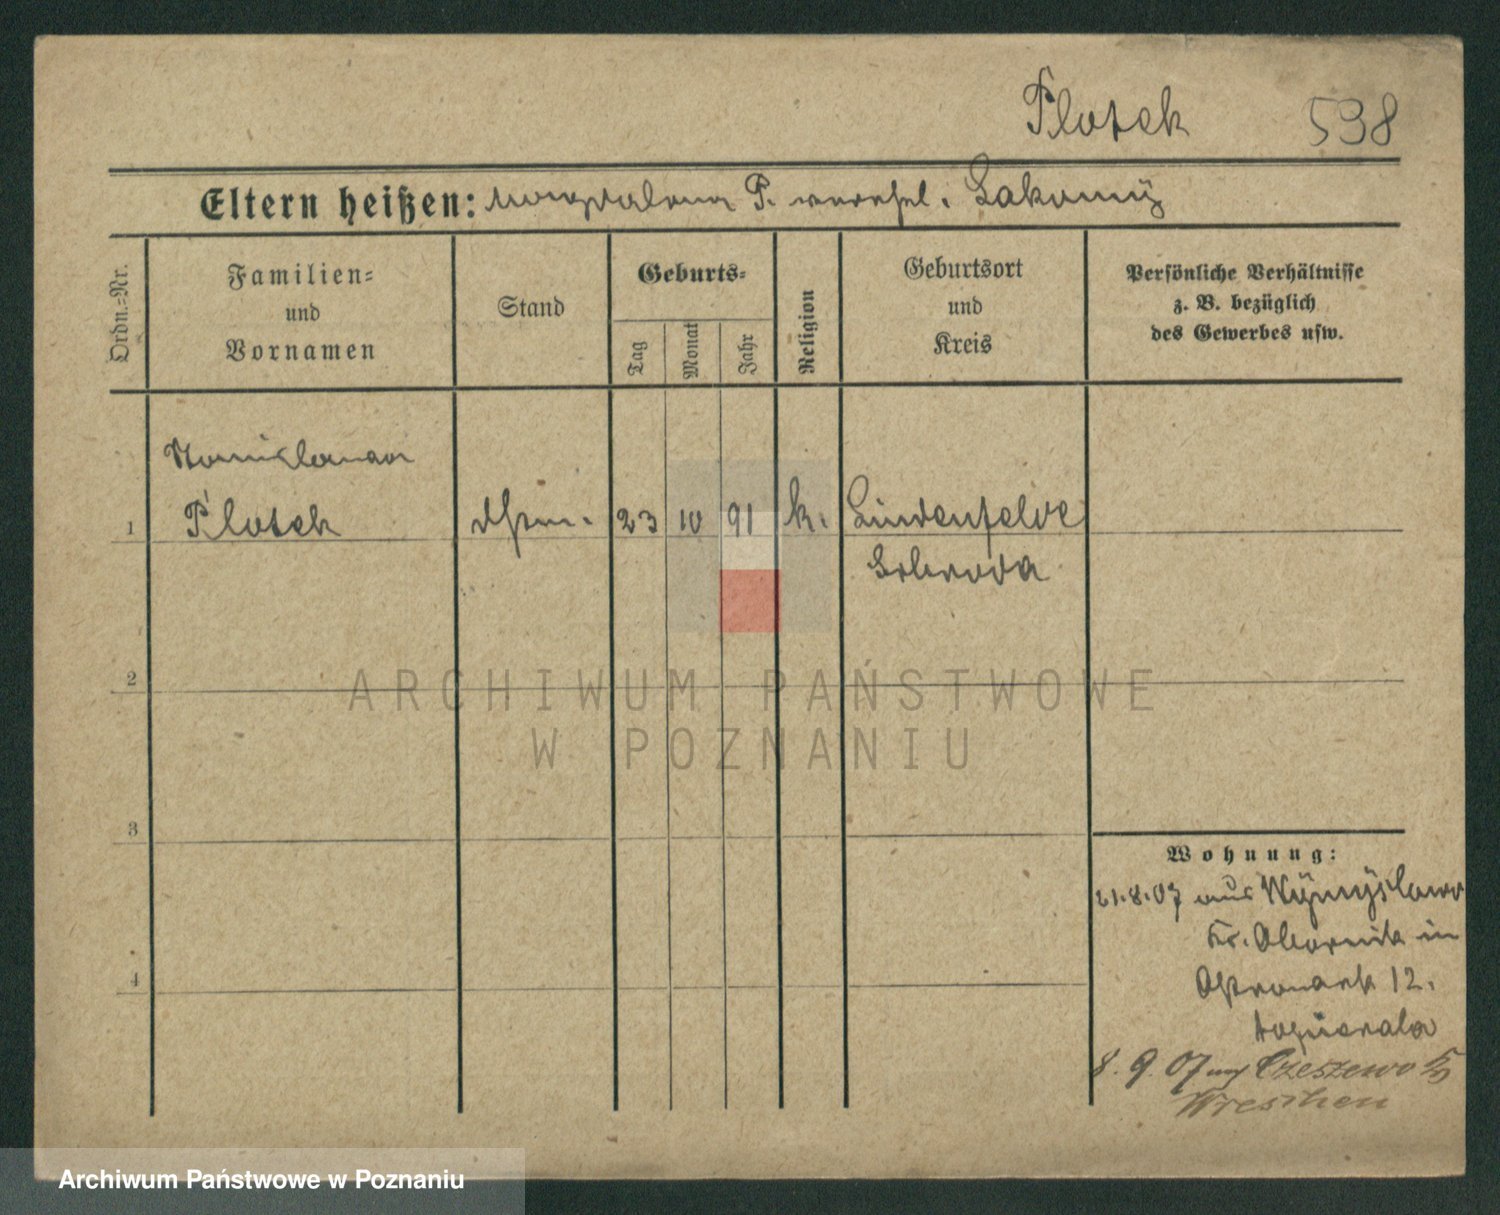 Plotek 598
Eltern heißen: Magdalena P. verehel. Lakomy
Ordn.-Nr.
Familien-
und
Vornamen
Stand
Geburts-
Tag
Monat
Jahr
Religion
Geburtsort
und
Kreis
Persönliche Verhältnisse
z. B. bezüglich
des Gewerbes usw.
Stanislawa
1 Plotek 23 10 91 k. Lindenfelde
2
3
4
Wohnung:
21.8.07 aus Wymyslowo
Kr. Obornik in
12.
8. 9. 07 Czeszewo
Wreschen
ARCHIWUM PAŃSTWOWE
W POZNANIU
Archiwum Państwowe w Poznaniu